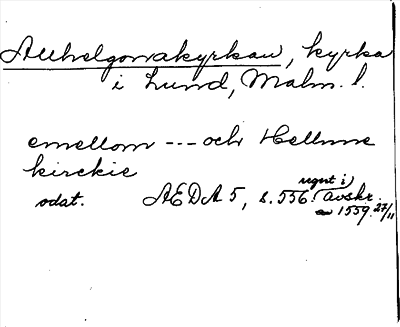 Allhelgonakyrkan, kyrka
i Lund, Malm. l.
emellom --- och Hellnne
kirckie
odat. AEDA 5, s. 556. (regist i) avskr.
av 1559 27/11